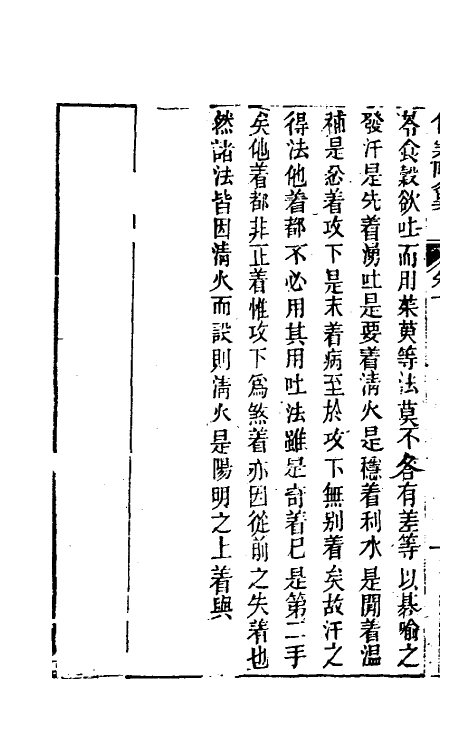 芩食穀欲吐而用茱萸等法莫不各有差等以棊喻之
發汗是先着湧吐是要着清火是穩着利水是閒着溫
補是忿着攻下是末着病至於攻下無别着矣故汗之
得法他着都不必用其用吐法雖是奇着已是第二手
矣他着都非正着惟攻下爲煞着亦因從前之失著也
然諸法皆因清火而設則清火是陽明之上着與